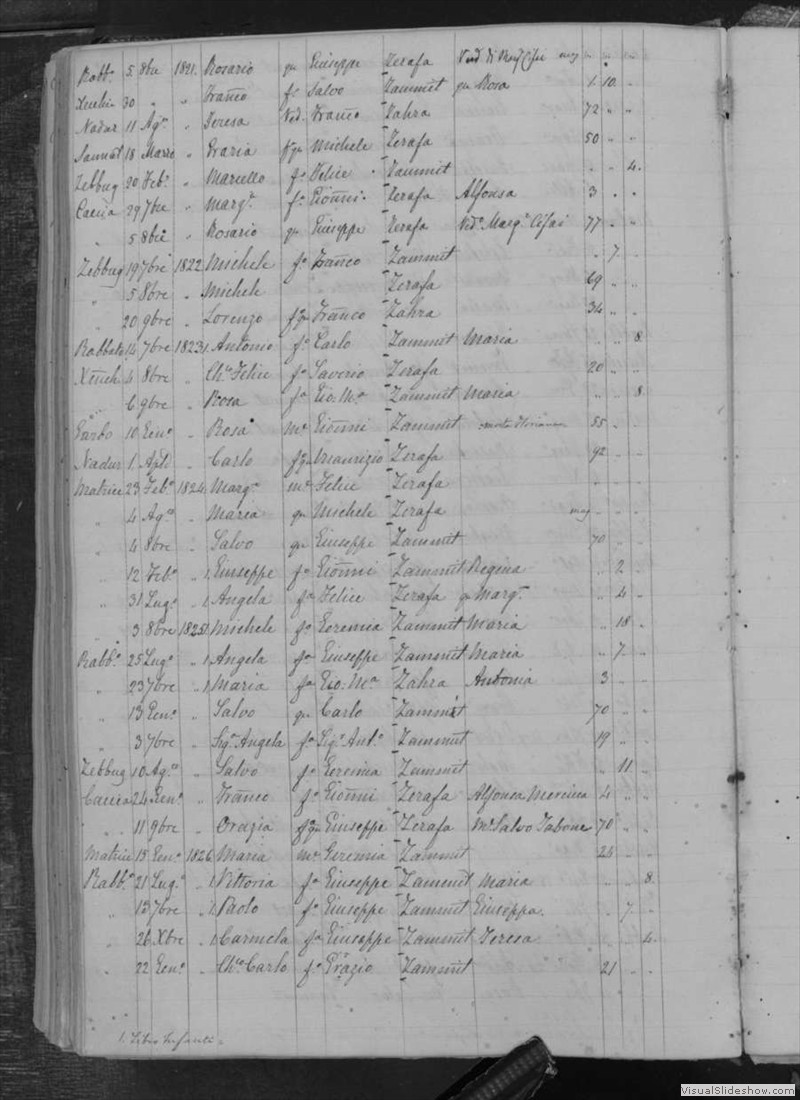 Rabb.o 5 8bre 1821. Rosario qu Giuseppe Zerafa Ved. di
30 " " Franco f.o Salvo Zammit qu Rosa 1. 10 "
Nadur 11 Ag.o " Teresa Ved. Franco Zahra 72 " "
Sannat 18 Marzo " Grazia Michele Zerafa 50 " "
Zebbug 20 Feb.o " Marcello f.o Felice Zammit " " 4.
Caccia 29 7bre " Marg.a f.a Gionni Zerafa Alfonsa 3 " "
" 5 8bre " Rosario qu Giuseppe Zerafa Ved.o Marg.a 77 " "
Zebbug 19 7bre 1822 Michele f.o Franco Zammit " 7 "
" 5 8bre " Michele Zerafa 69 " "
" 20 9bre " Lorenzo fqu Franco Zahra 34 " "
Rabbato 14 7bre 1823 1. Antonio f.o Carlo Zammit Maria " " 8
4 8bre " Ch.o Felice f.o Saverio Zerafa 20 " "
" 6 9bre " Rosa f.a Gio. M.a Zammit Maria " " 8
Garbo 10 Gen.o " Rosa m.e Gionni Zammit 55 "
Nadur 1 Apl. " Carlo fqu Maurizio Zerafa 92 "
Matrice 23 Feb.o 1824 Marg.a m.e Felice Zerafa
" 4 Ag.o " Maria qu Michele Zerafa mag
" 4 8bre " Salvo qu Giuseppe Zammit 70 "
" 12 Feb.o " 1. Giuseppe f.o Gionni Zammit Regina " 2
" 31 Lug.o " 1. Angela f.a Felice Zerafa qu Marg.a " 4 "
" 3 8bre 1825 1. Michele f.o Geremia Zammit Maria " 18 "
Rabb.o 25 Lug.o " 1. Angela f.a Giuseppe Zammit Maria " 7 "
" 23 7bre " 1. Maria f.a Gio. M.a Zahra Antonia 3 " "
" 13 Gen.o " Salvo qu Carlo Zammit 70 " "
" 3 7bre " Sig.a Angela f.a Sig.r Ant.o Zammit 19 " "
Zebbug 10 Ag.o " Salvo f.o Geremia Zammit " 11 "
Caccia 24 Gen.o " Franco f.o Gionni Zerafa Alfonsa 4 " "
" 11 9bre " Orazia fqu Giuseppe Zerafa M.e Salvo Tabone 70 " "
Matrice 15 Gen.o 1826 Maria m.e Geremia Zammit 24 " "
Rabb.o 21 Lug.o " 1. Vittoria f.a Giuseppe Zammit Maria " " 8
" 13 7bre " 1. Paolo f.o Giuseppe Zammit Giuseppa " 7 "
" 26 Xbre " 1. Carmela f.a Giuseppe Zammit Teresa " " 4
" 22 Gen.o " Ch.o Carlo f.o Grazio Zammit 21 " "
1. Libro Infanti.
VisualSlideshow.com